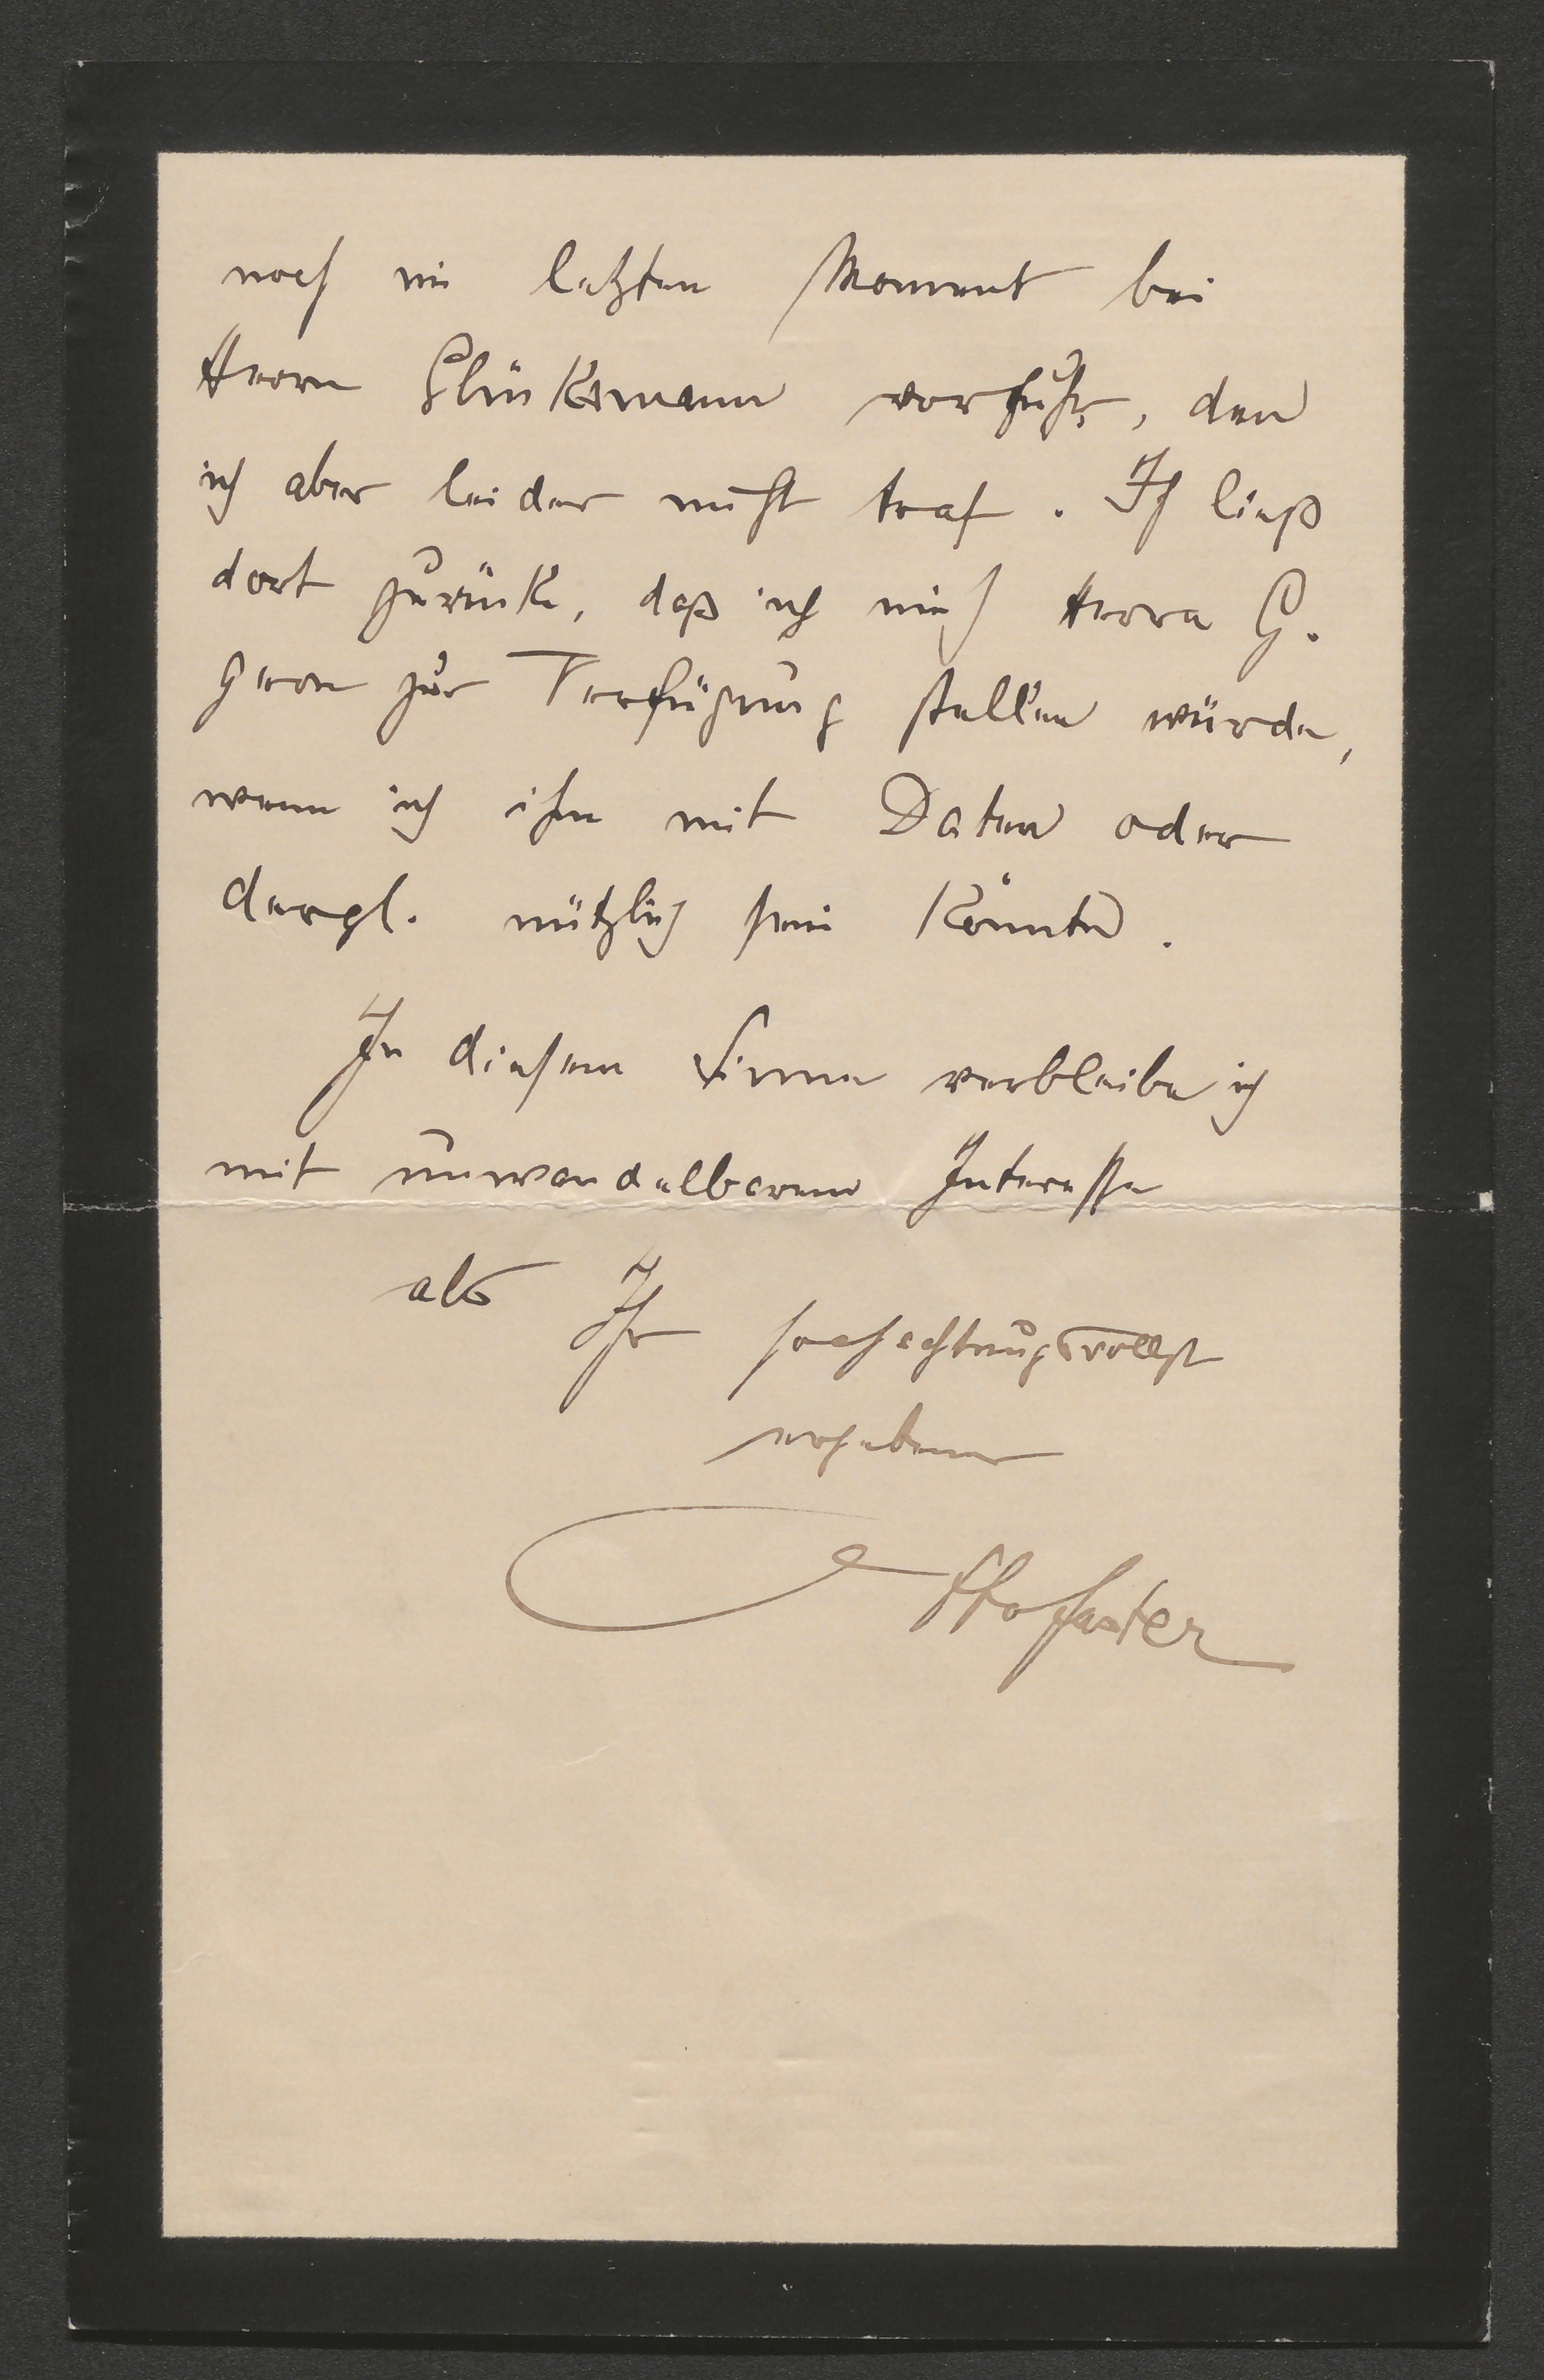 noch im letzten Moment bei
Herrn Glücksmann vorfuhr, den
ich aber leider nicht traf. Ich ließ
dort zurück, daß ich mich Herrn G.
gern zur Verfügung stellen würde,
wenn ich ihm mit Daten oder
dergl. nützlich sein könnte.
In diesem Sinne verbleibe ich
mit unwandelbarem Interesse
als Ihr hochachtungsvollst
ergebener